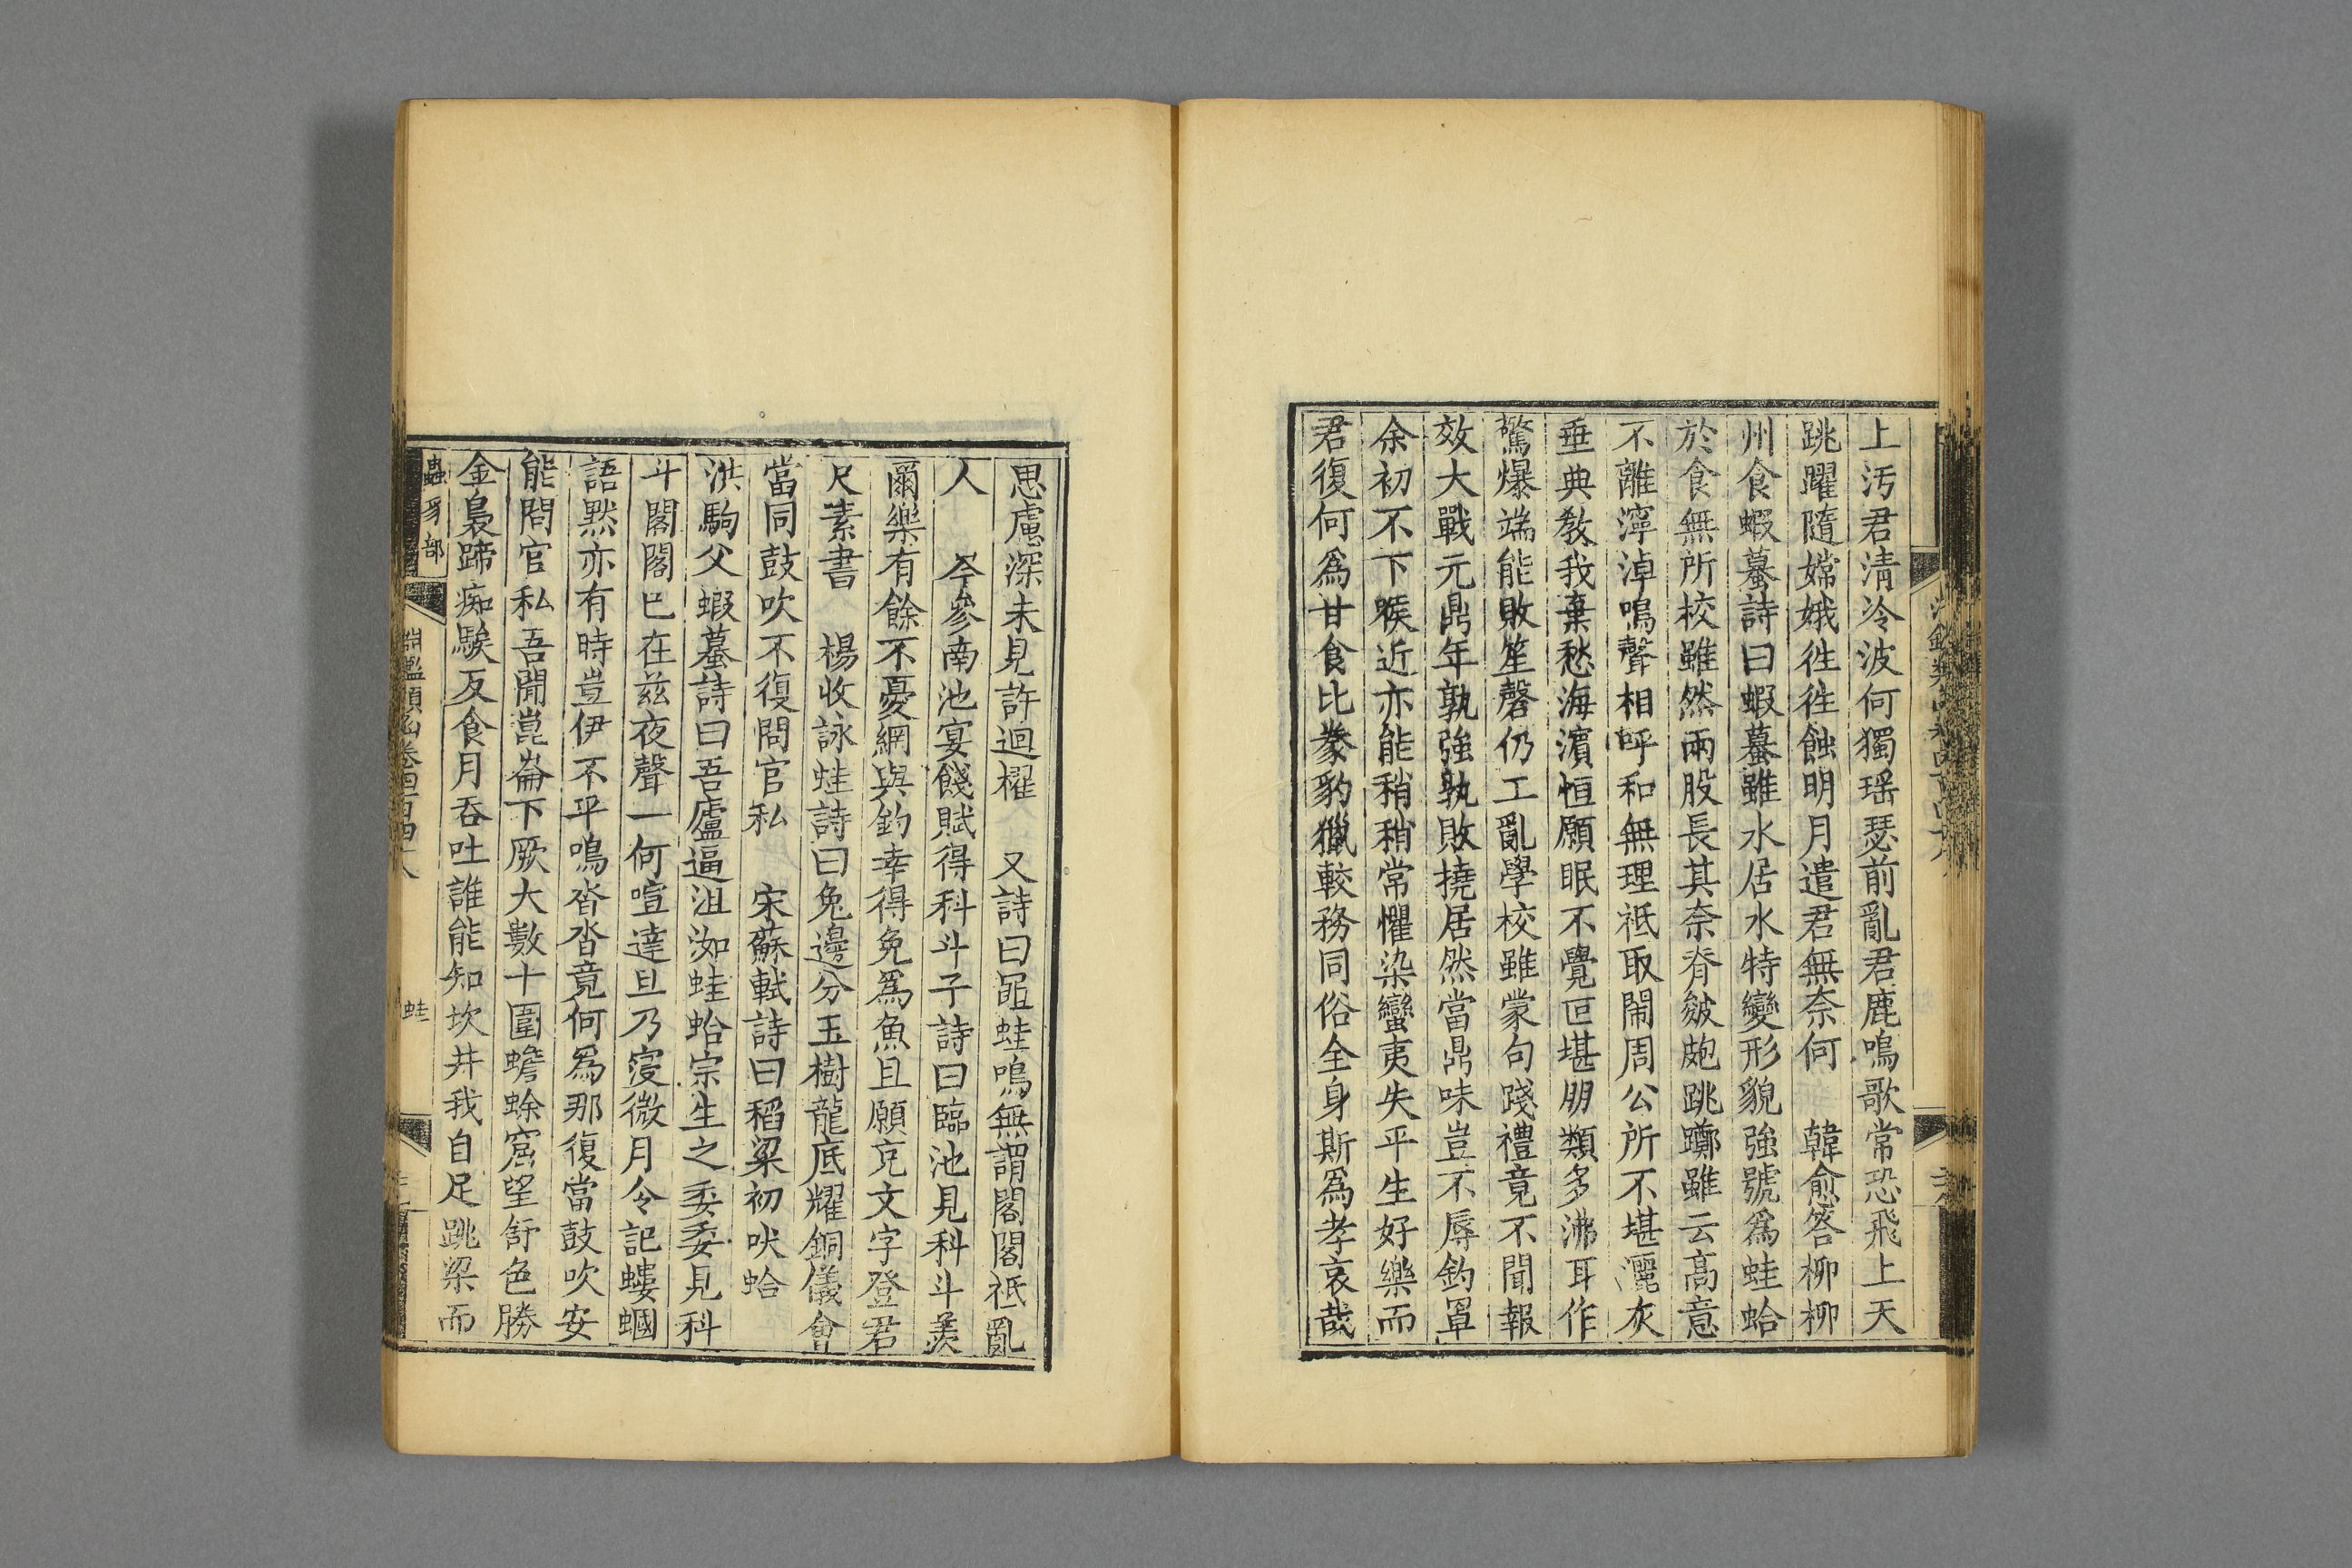 上汚君清冷波何獨瑶瑟前亂君鹿鳴歌常恐飛上天
跳躍隨嫦娥徃徃蝕明月遣君無奈何　韓愈答柳柳
州食蝦蟇詩曰蝦蟇雖水居水特變形貌強號爲蛙蛤
於食無所校雖然兩股長其奈脊皴皰跳躑雖云高意
不離濘淖鳴聲相呼和無理祇取鬧周公所不堪灑灰
垂典教我棄愁海濱恒願眠不覺叵堪朋類多沸耳作
驚爆端能敗笙磬仍工亂學校雖蒙句踐禮竟不聞報
效大戰元鼎年孰強孰敗撓居然當鼎味豈不辱釣罩
余初不下喉近亦能稍稍常懼染蠻夷失平生好樂而
君復何爲甘食比豢豹獵較務同俗全身斯爲孝哀哉
思慮深未見許迴櫂　又詩曰黽蛙鳴無謂閤閤祇亂
人　岑參南池宴餞賦得科斗子詩曰臨池見科斗羨
爾樂有餘不憂網與釣幸得免爲魚且願充文字登君
尺素書　楊收詠蛙詩曰兔邊分玉樹龍底耀銅儀會
當同鼓吹不復問官私　宋蘇軾詩曰稻粱初吠蛤
洪駒父蝦蟇詩曰吾廬逼沮洳蛙蛤宗生之委委見科
斗閣閣已在兹夜聲一何喧達旦乃寑微月令記螻蟈
語黙亦有時豈伊不平鳴沓沓竟何爲那復當鼓吹安
能問官私吾聞崑崙下厥大數十圍蟾蜍窟望舒色勝
金裊蹄痴騃反食月吞吐誰能知坎井我自足跳梁而
蟲豸部
淵鑑類函卷四百四十八
蛙